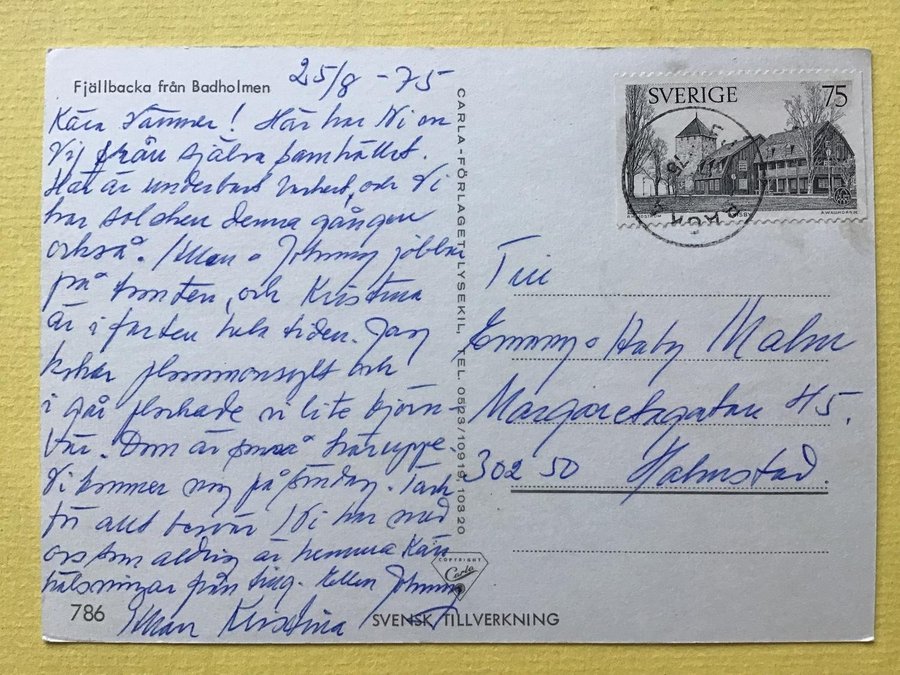 Fjällbacka från Badholmen
25/8 -75
Kära Vänner! Här har Ni en
vy från själva samhället.
Här är underbart vackert, och Vi
har sol den denna gången
också. Johnny jobbar
på tomten, och Kristina
är i farten hela tiden. Jag
kokar plommonsylt och
i går plockade vi lite björn-
bär. Dom är små häruppe.
Vi kommer nog på söndag. Tack
för allt besvär Ni har med
oss som aldrig är hemma Kära
hälsningar från Johnny
Kristina
786
CARLA-FÖRLAGET, LYSEKIL, TEL. 0523/10919, 10320
COPYRIGHT
Carla
SVENSK TILLVERKNING
SVERIGE 75
75
Till
Emmy o Malm
Margaretagatan 45.
302 50 Halmstad.